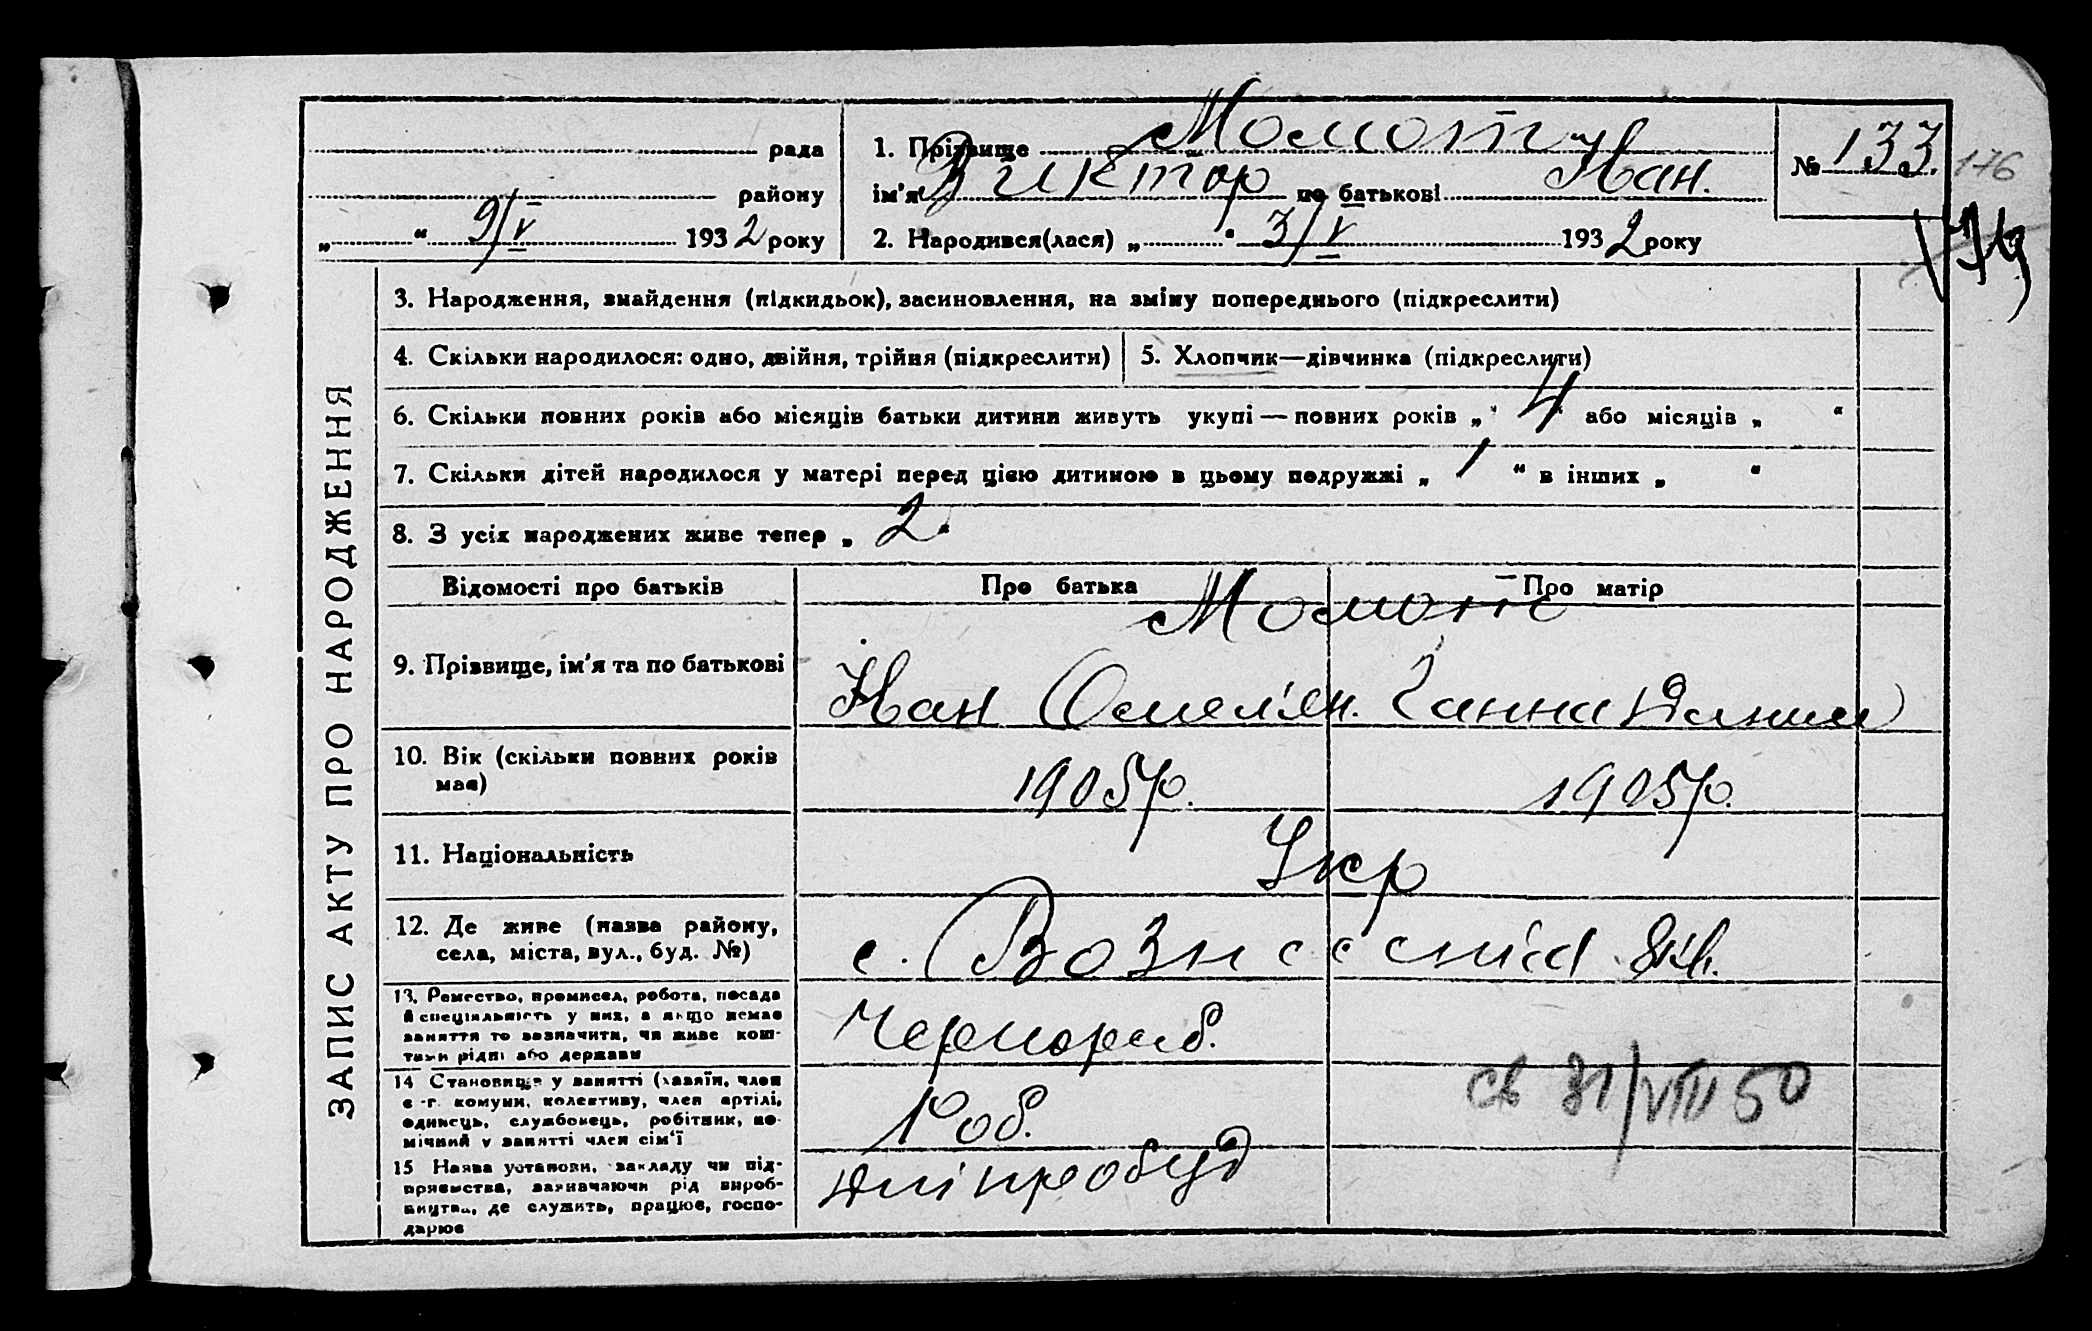 рада
району
„ “ 9/V 1932 року
1. Прізвище Момот
ім'я Виктор по батькові Іван.
2. Народився(лася) „ “ 3/V 1932 року
№ 133.
176
ЗАПИС АКТУ ПРО НАРОДЖЕННЯ
3. Народження, знайдення (підкидьок), засиновлення, на зміну попереднього (підкреслити)
4. Скільки народилося: одно, двійня, трійня (підкреслити)
5. Хлопчик—дівчинка (підкреслити)
6. Скільки повних років або місяців батьки дитини живуть укупі — повних років „ 4 “ або місяців „ “
7. Скільки дітей народилося у матері перед цією дитиною в цьому подружжі „ 1 “ в інших „ “
8. З усіх народжених живе тепер „ 2 “
Відомості про батьків
Про батька
Про матір
Момот
9. Прізвище, ім'я та по батькові
Іван Омелян.
Ганна Данил
10. Вік (скільки повних років
має)
1905 р.
1905 р.
11. Національність
Укр
12. Де живе (назва району,
села, міста, вул., буд. №)
с. Вознесенка
13. Ремество, промисел, робота, посада
й спеціяльність у них, а якщо немає
заняття то зазначити, чи живе кош-
тами рідні або держави
Чернороб.
14 Становище у занятті (хазяїн, член
с.-г. комуни, колективу, член артілі,
одинець, службовець, робітник, по-
мічний у занятті член сім'ї
Роб.
св 31/VIII 50
15 Назва установи, закладу чи під-
приємства, зазначаючи рід вироб-
ництва, де служить, працює, госпо-
дарює
Дніпробуд